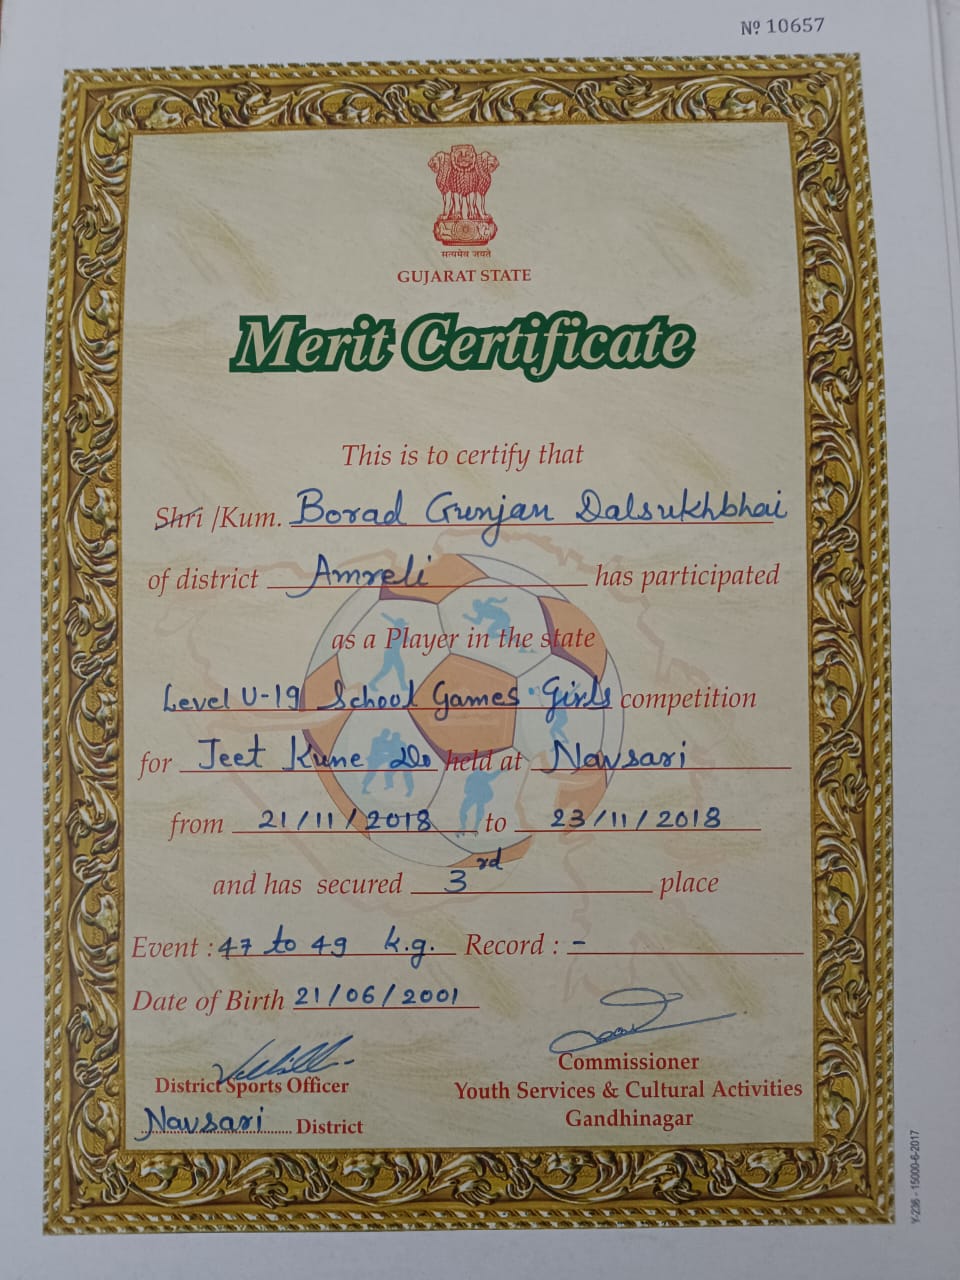 Nº 10657
सत्यमेव जयते
GUJARAT STATE
Merit Certificate
This is to certify that
Shri /Kum. Borad Gunjan Dalsukhbhai
of district Amreli has participated
as a Player in the state
Level U-19 School Games Girls competition
for Jeet Kune Do held at Navsari
from 21/11/2018 to 23/11/2018
and has secured 3rd place
Event : 47 to 49 k.g. Record : -
Date of Birth 21/06/2001
District Sports Officer
Navsari District
Commissioner
Youth Services & Cultural Activities
Gandhinagar
Y-236 - 15000-6-2017